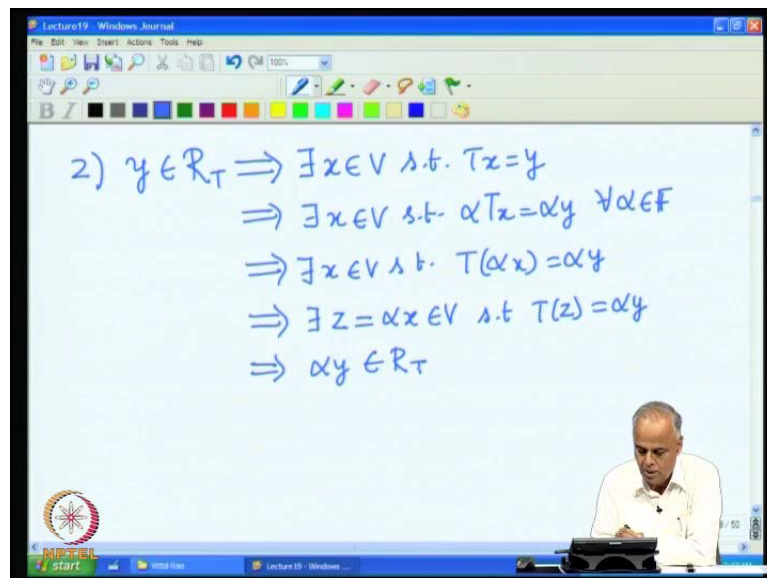 Lecture19 - Windows Journal
File Edit View Insert Actions Tools Help
100%
B I
2) y ∈ R_T ⟹ ∃ x ∈ V s.t. Tx = y
⟹ ∃ x ∈ V s.t. αTx = αy ∀ α ∈ F
⟹ ∃ x ∈ V s.t. T(αx) = αy
⟹ ∃ z = αx ∈ V s.t T(z) = αy
⟹ αy ∈ R_T
/ 50
NPTEL
start Vittal Rao Lecture19 - Windows ...